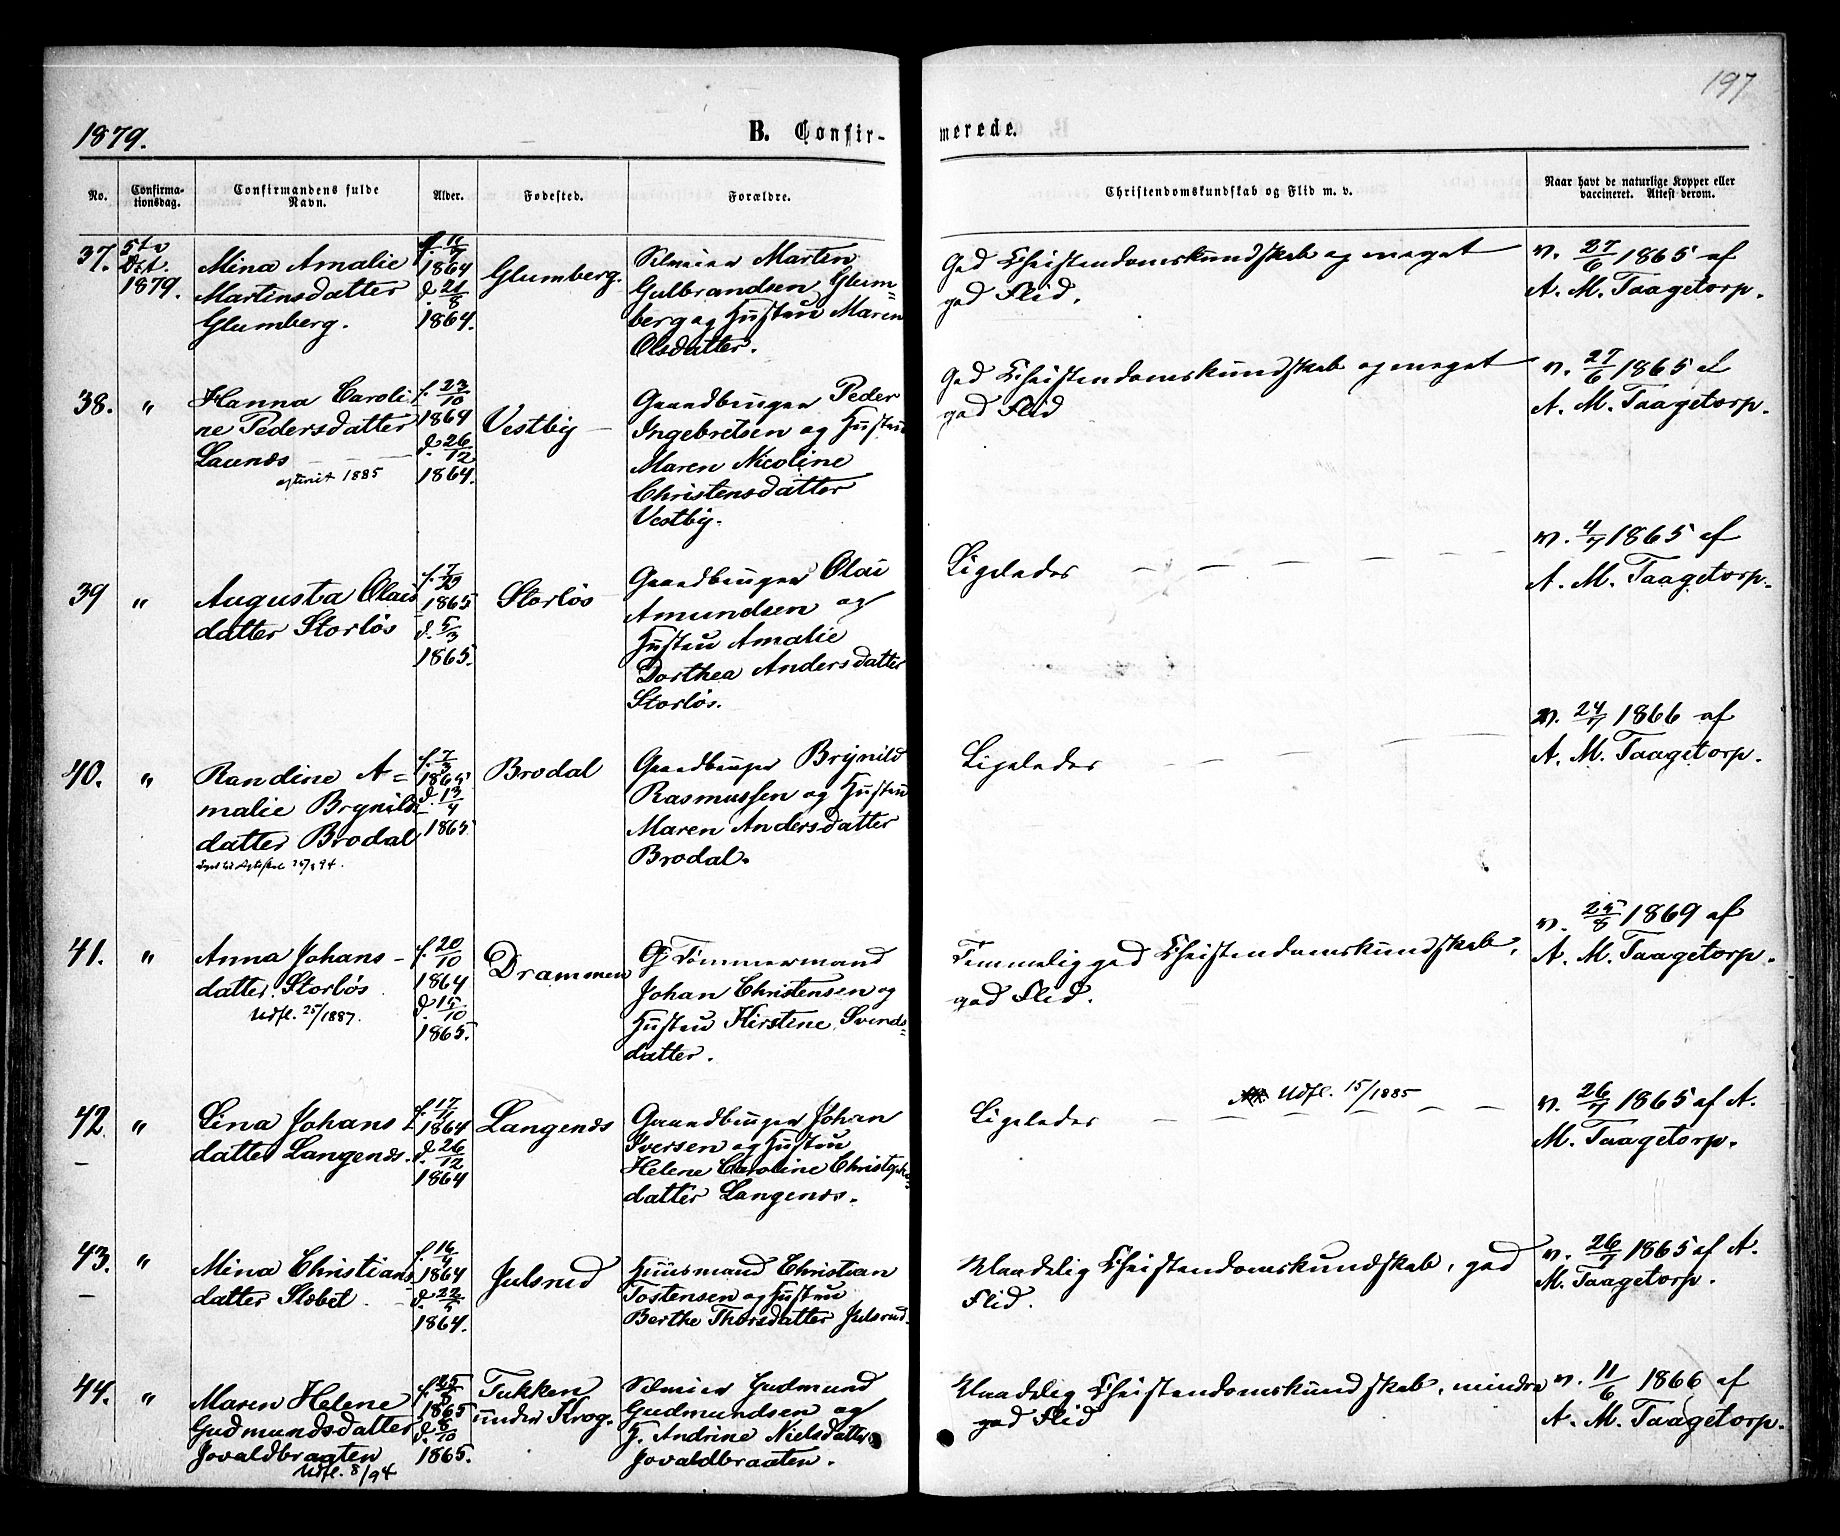 197
1879.
B. Confir-
merede.
No.
Confirma-
tionsdag.
Confirmandens fulde
Navn.
Alder.
Fødested.
Forældre.
Christendomskundskab og Flid m. v.
Naar havt de naturlige Kopper eller
vaccineret. Attest derom.
37.
5te
Oct.
1879.
Mina Amalie
Martinsdatter
Glumberg.
1864
d. 21/8
1864.
Glumberg.
Selveier Martin
Gulbrandsen Glum=
berg og Hustru Maren
Olsdatter.
God Christendomskundskab og meget
god Flid.
v. 27/6 1865 af
A. M. Taagetorp.
38.
"
Hanna Caroli
ne Pedersdatter
Launæs
1885
f. 23/10
1864
d. 26/12
1864.
Vestby
Gaardbruger Peder
Ingebretsen og Hustru
Maren Nicoline
Christensdatter
Vestby.
God Christendomskundskab og meget
god Flid
v. 27/6 1865 af
A. M. Taagetorp.
39
"
Augusta Olais
datter Storløs
1865
d. 5/3
1865.
Storløs
Gaardbruger Olai
Amundsen og
Hustru Amalie
Dorthea Andersdatter
Storløs.
Ligeledes
v. 4/7 1865 af
A. M. Taagetorp.
40.
"
Randine A=
malie Brynilds
datter Brodal
f. 7/3
1865
d. 13/4
1865.
Brodal
Gaardbruger Brynild
Rasmussen og Hustru
Maren Andersdatter
Brodal.
Ligeledes
v. 24/7 1866 af
A. M. Taagetorp.
41.
"
Anna Johans-
datter Storløs
Udfl. 25/1887.
f. 20/10
1864
d. 15/10
1865.
Drammen
Tømmermand
Johan Christensen og
Hustru Kirstine Svends=
datter.
Temmelig god Christendomskundskab,
god Flid.
v. 25/8 1869 af
A. M. Taagetorp.
42.
"
Lina Johans
datter Langenæs.
f. 17/11
1864
d. 26/12
1864
Langenæs
Gaardbruger Johan
Iversen og Hustru
Helene Caroline Christophers=
datter Langenæs.
Udfl. 15/1885
Ligeledes
v. 26/7 1865 af A.
M. Taagetorp.
43.
"
Mina Christians
datter Slobet
f. 16/4
1864
d. 22/5
1864.
Julsrud
Huusmand Christian
Tostensen og Hustru
Berthe Thorsdatter Julsrud.
Maadelig Christendomskundskab, god
Flid.
v. 26/7 1865 af A.
M. Taagetorp.
44.
"
Maren Helene
Gudmundsdatter
Jovaldbraaten
Udfl. 8/94
1865
d. 8/10
1865.
Tukken
under Krog.
Selveier Gudmund
Gudmundsen og
H. Andrine Nielsdatter
Jovaldbraaten.
Maadelig Christendomskundskab, mindre
god Flid
v. 11/6 1866 af
A. M. Taagetorp.